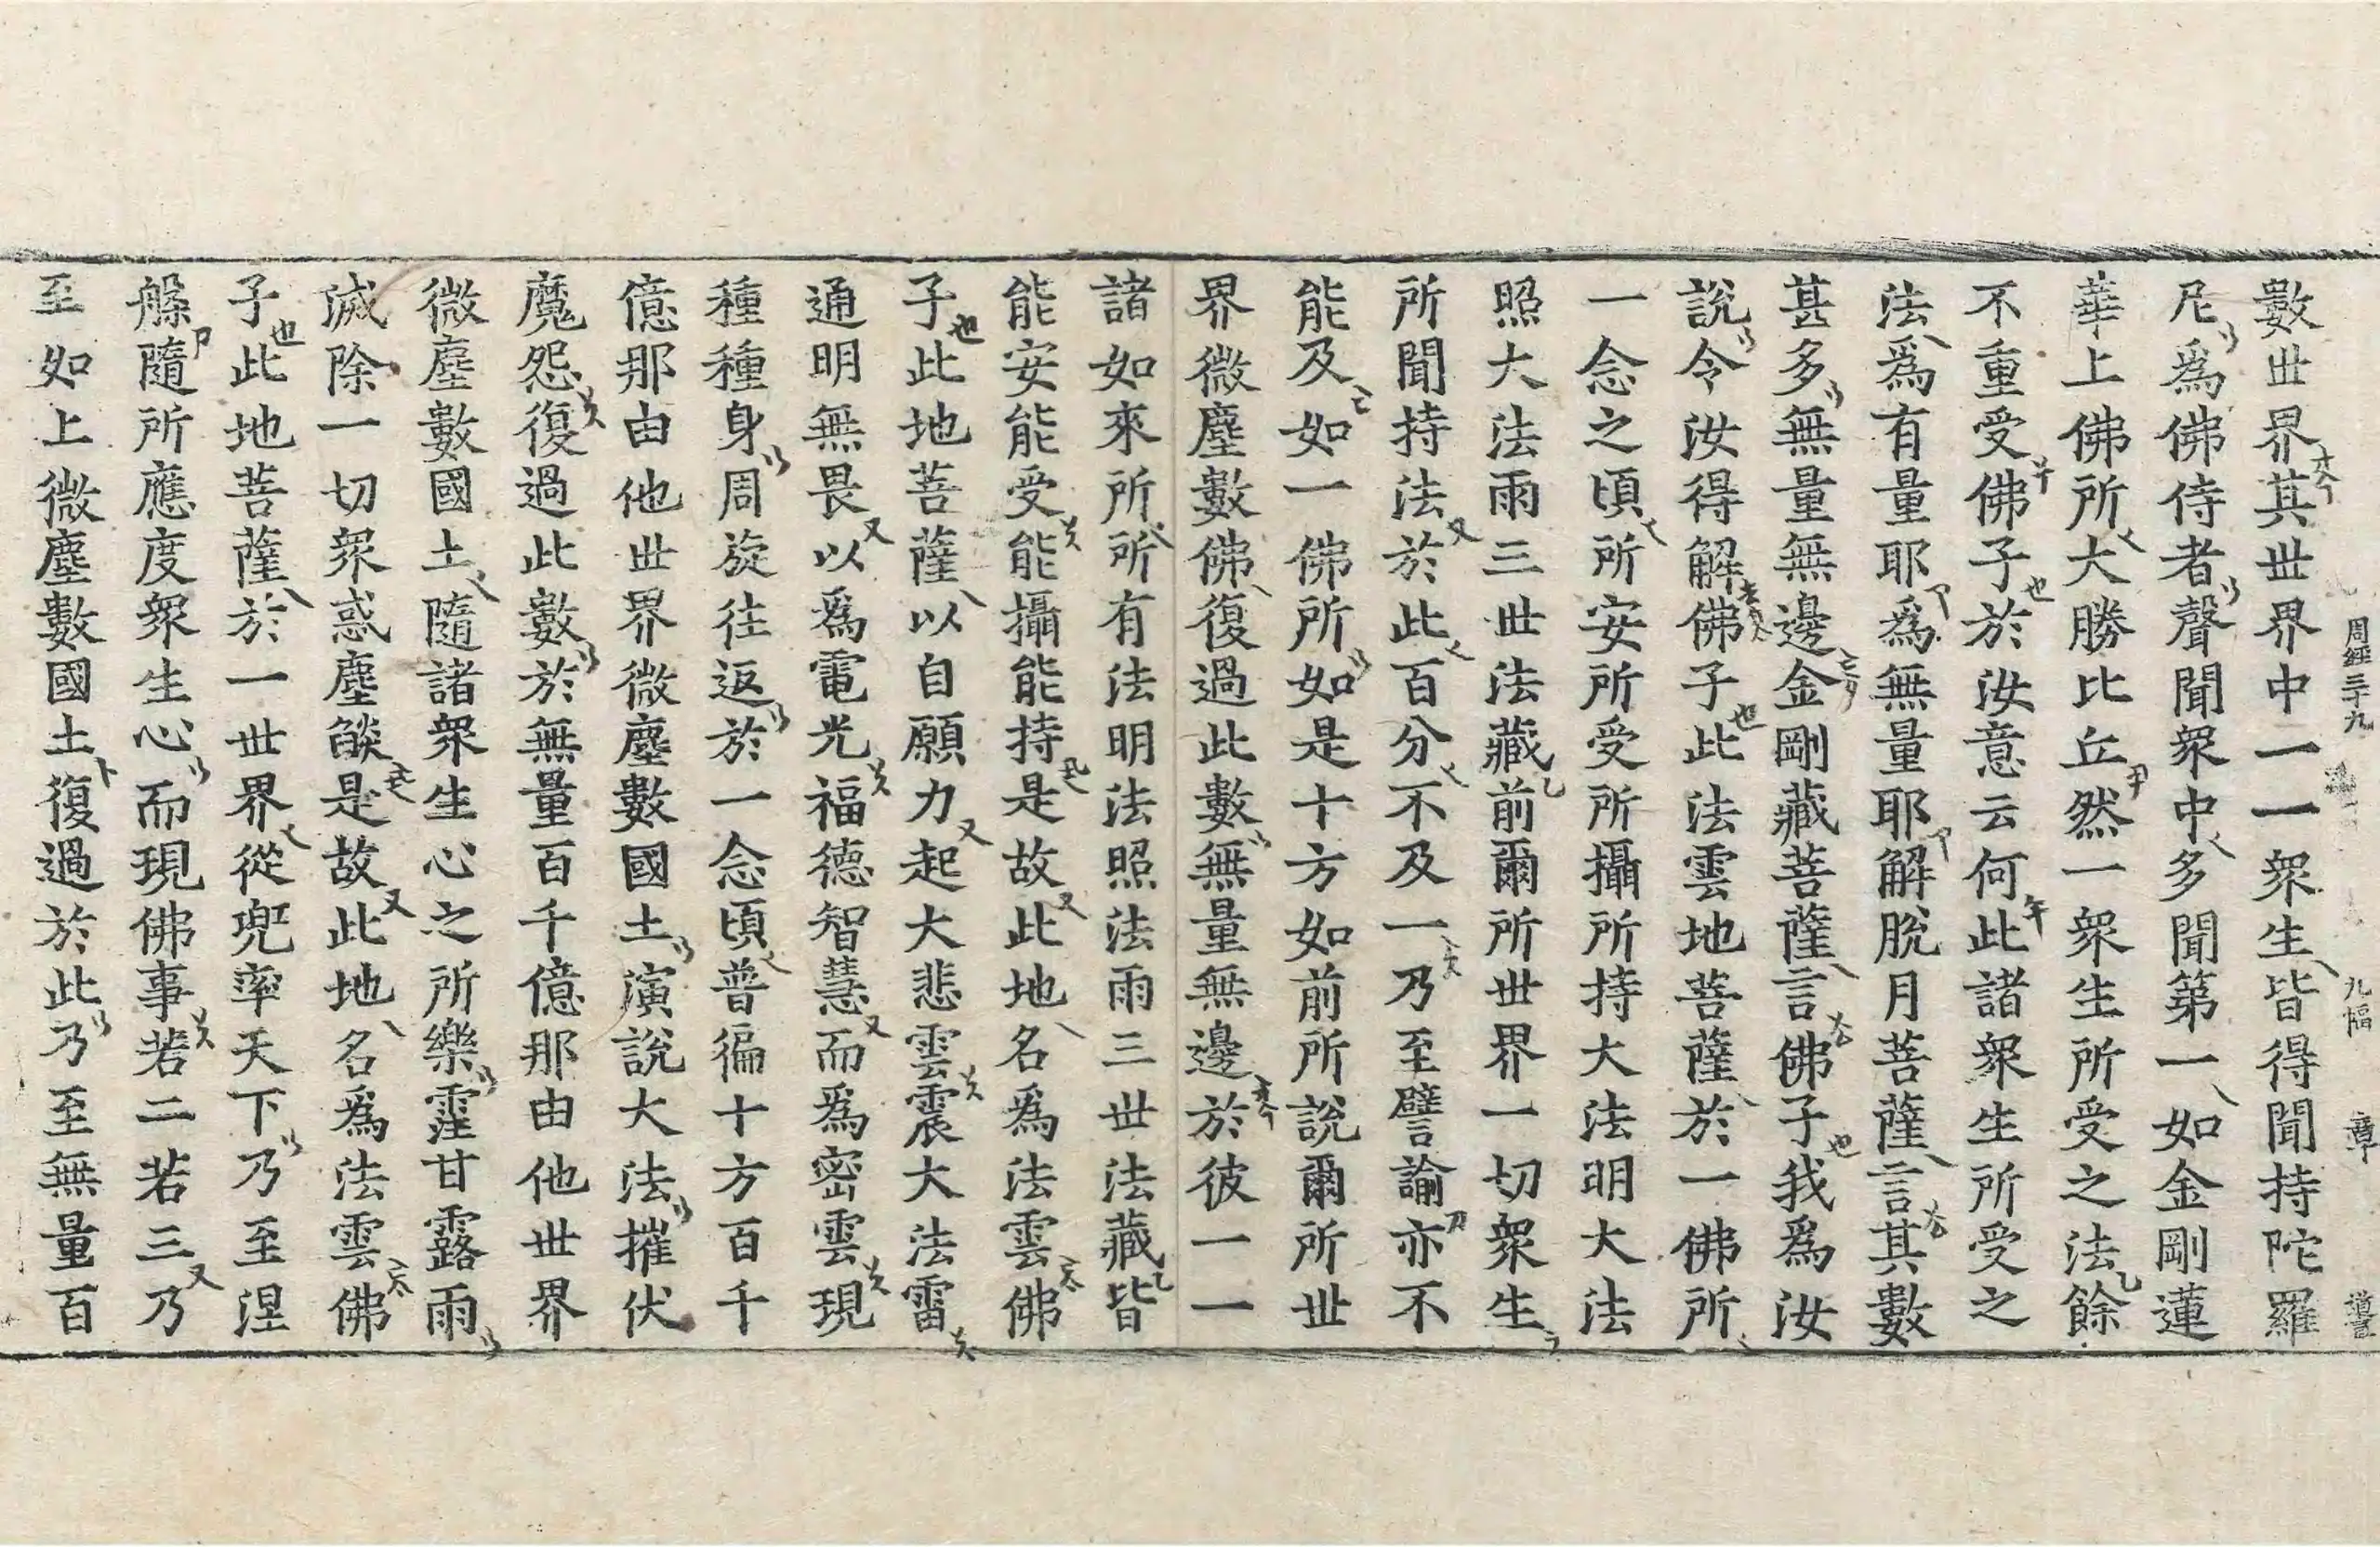 周經三十九 九幅 章 噵
數世界其世界中一一眾生皆得聞持陀羅
尼爲佛侍者聲聞眾中多聞第一如金剛蓮
華上佛所大勝比丘然一眾生所受之法餘
不重受佛子於汝意云何此諸眾生所受之
法爲有量耶爲無量耶解脫月菩薩言其數
甚多無量無邊金剛藏菩薩言佛子我爲汝
說令汝得解佛子此法雲地菩薩於一佛所
一念之頃所安所受所攝所持大法明大法
照大法雨三世法藏前爾所世界一切眾生
所聞持法於此百分不及一乃至譬諭亦不
能及如一佛所如是十方如前所說爾所世
界微塵數佛復過此數無量無邊於彼一一
諸如來所所有法明法照法雨三世法藏皆
能安能受能攝能持是故此地名爲法雲佛
子此地菩薩以自願力起大悲雲震大法雷
通明無畏以爲電光福德智慧而爲密雲現
種種身周旋往返於一念頃普徧十方百千
億那由他世界微塵數國土演說大法摧伏
魔怨復過此數於無量百千億那由他世界
微塵數國土隨諸眾生心之所樂霔甘露雨
滅除一切眾惑塵燄是故此地名爲法雲佛
子此地菩薩於一世界從兜率天下乃至涅
槃隨所應度眾生心而現佛事若二若三乃
至如上微塵數國土復過於此乃至無量百